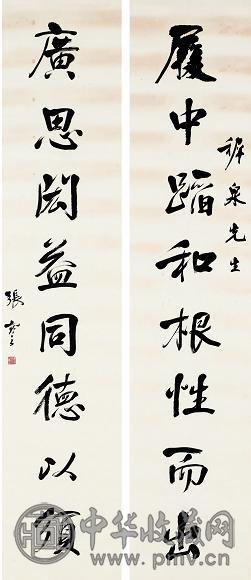 泉先生
履中蹈和根性而出
廣思閎益同德以
張
中华收藏网
www.pmv.cn